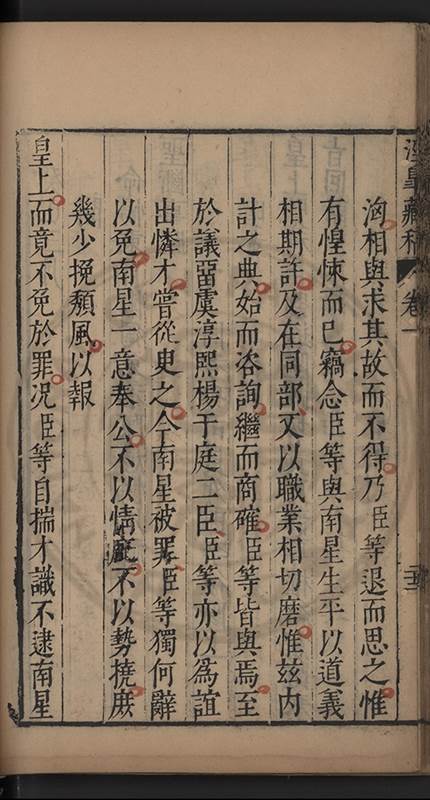 洶相與求其故而不得乃臣等退而思之惟
有惶悚而已竊念臣等與南星生平以道義
相期許及在同部又以職業相切磨惟玆內
計之典始而咨詢繼而商確臣等皆與焉至
於議畱虞淳熙楊于庭二臣臣等亦以爲誼
出憐才嘗從臾之今南星被罪臣等獨何辭
以免南星一意奉公不以情庇不以勢撓庶
幾少挽頹風以報
皇上而竟不免於罪况臣等自揣才識不逮南星
涇臯藏稿
卷一